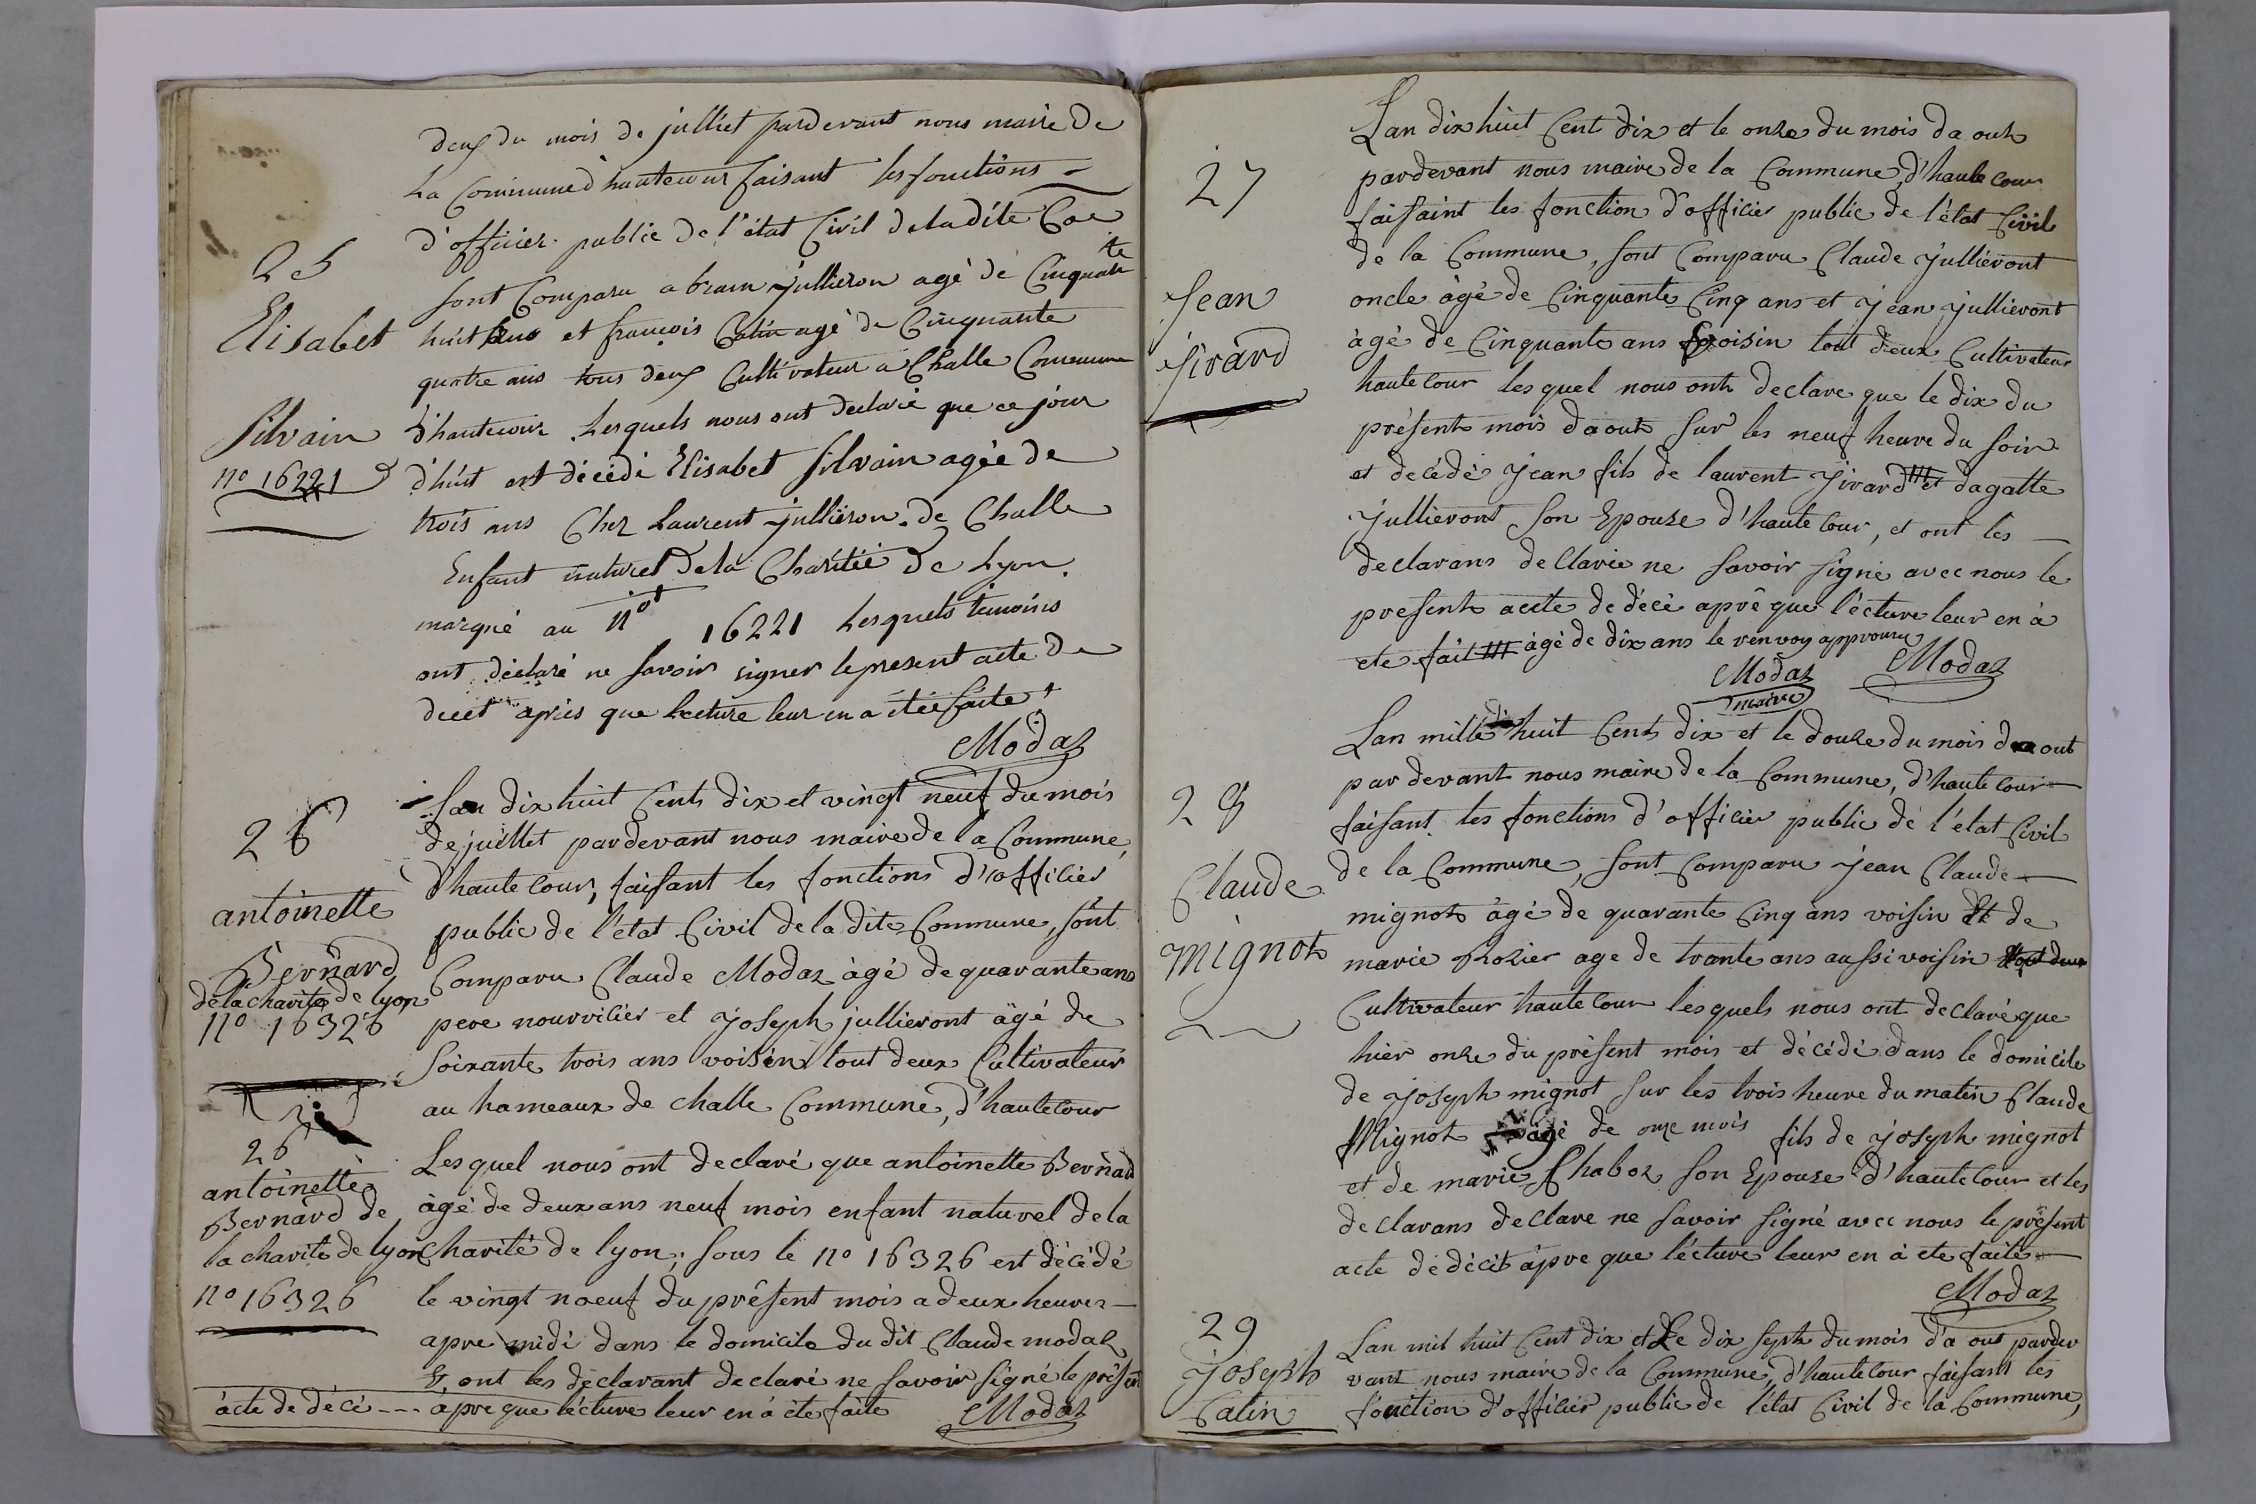 deux du mois de julliet pardevant nous maire de
La Commune d'hautecour faisant les fonctions
d'officier public de l'état Civil de la dite Coe
sont Comparu abram jullieron agé de Cinquante
25
Elisabet
Silvain
no 16221
huit ans et françois Catin agé de Cinquante
quatre ans tous deux Cultivateur a Challe Commune
d'hautecour. Lesquels nous ont declaré que ce jour
d'huit est décédé Elisabet Silvain agée de
trois ans Chez Laurent jullieron de Challe
Enfant naturel de la Charitée de Lyon.
marqué au no 16221 Lesquels temoins
ont déclaré ne savoir signer le present acte de
decet après que Lecture leur en a étée faite
Modaz
26
antoinette
Bernard
de la charite de lyon
no 16326
Lan dix huit Cents dix et vingt neuf du mois
de juillet pardevant nous maire de la Commune,
d'haute Cour, faisant les fonctions d'officier
public de l'état Civil de la dite Commune, sont
Comparu Claude Modaz àgé de quarante ans
pere nourricier et joseph jullieront agé de
soixante trois ans voisin tout deux Cultivateur
au hameaux de challe Commune, d'hautecour
26
antoinette
Bernard de
la charite de lyon
no 16326
Lesquel nous ont declaré que antoinette Bernard
àgé de deux ans neuf mois enfant naturel de la
Charité de lyon; sous le no 16326 est décédé
le vingt noeuf du présent mois a deux heures
apre midi dans le domicile du dit Claude modaz
Et ont les déclarant declaré ne savoir signé le présen
àcte de décé --- apre que lécture leur en à éte faite
Modaz
27
Jean
Jirard
Lan dix huit Cent dix et le onze du mois da out
pardevant nous maire de la Commune, d'haute cour
faisaint les fonction d'officier public de l'état Civil
de la Commune, sont Comparu Claude jullieront
oncle àgé de Cinquante Cinq ans et jean jullieront
àgé de Cinquante ans voisin tout deux Cultivateur
haute Cour lesquel nous ont declare que le dix du
présent mois daout sur les neuf heure du soir
et decédé jean fils de laurent jirard et dagatte
jullieront son Epouze d'haute Cour, et ont les
declarans declarée ne savoir signé avec nous le
present acte de décè aprê que l'écture leur en à
ete fait àgé de dix ans le renvoy approuvu
Modaz
maire
Modaz
28
Claude
mignot
Lan mille huit Cents dix et le douze du mois da out
pardevant nous maire de la Commune, d'haute cour
faisant les fonctions d'officier public de l'état Civil
de la Commune, sont Comparu jean Claude
mignot àgé de quarante Cinq ans voisin et de
marie Rozier age de trante ans aussi voisin tout deux
Cultivateur haute Cour lesquels nous ont declaré que
hier onze du présent mois et décédé dans le domicile
de joseph mignot sur les trois heure du matin Claude
Mignot àgé de onze mois fils de joseph mignot
et de marie Chaboz son Epouze d'haute Cour et les
declarans declare ne savoir signé avec nous le présent
acte de décét àpre que l'écture leur en à ete faite
Modaz
29
joseph
Catin
Lan mil huit Cent dix et Le dix seph du mois d'a out parde
vant nous maire de la Commune, d'haute Cour faisant les
fonction d'officier public de l'état Civil de la Commune,